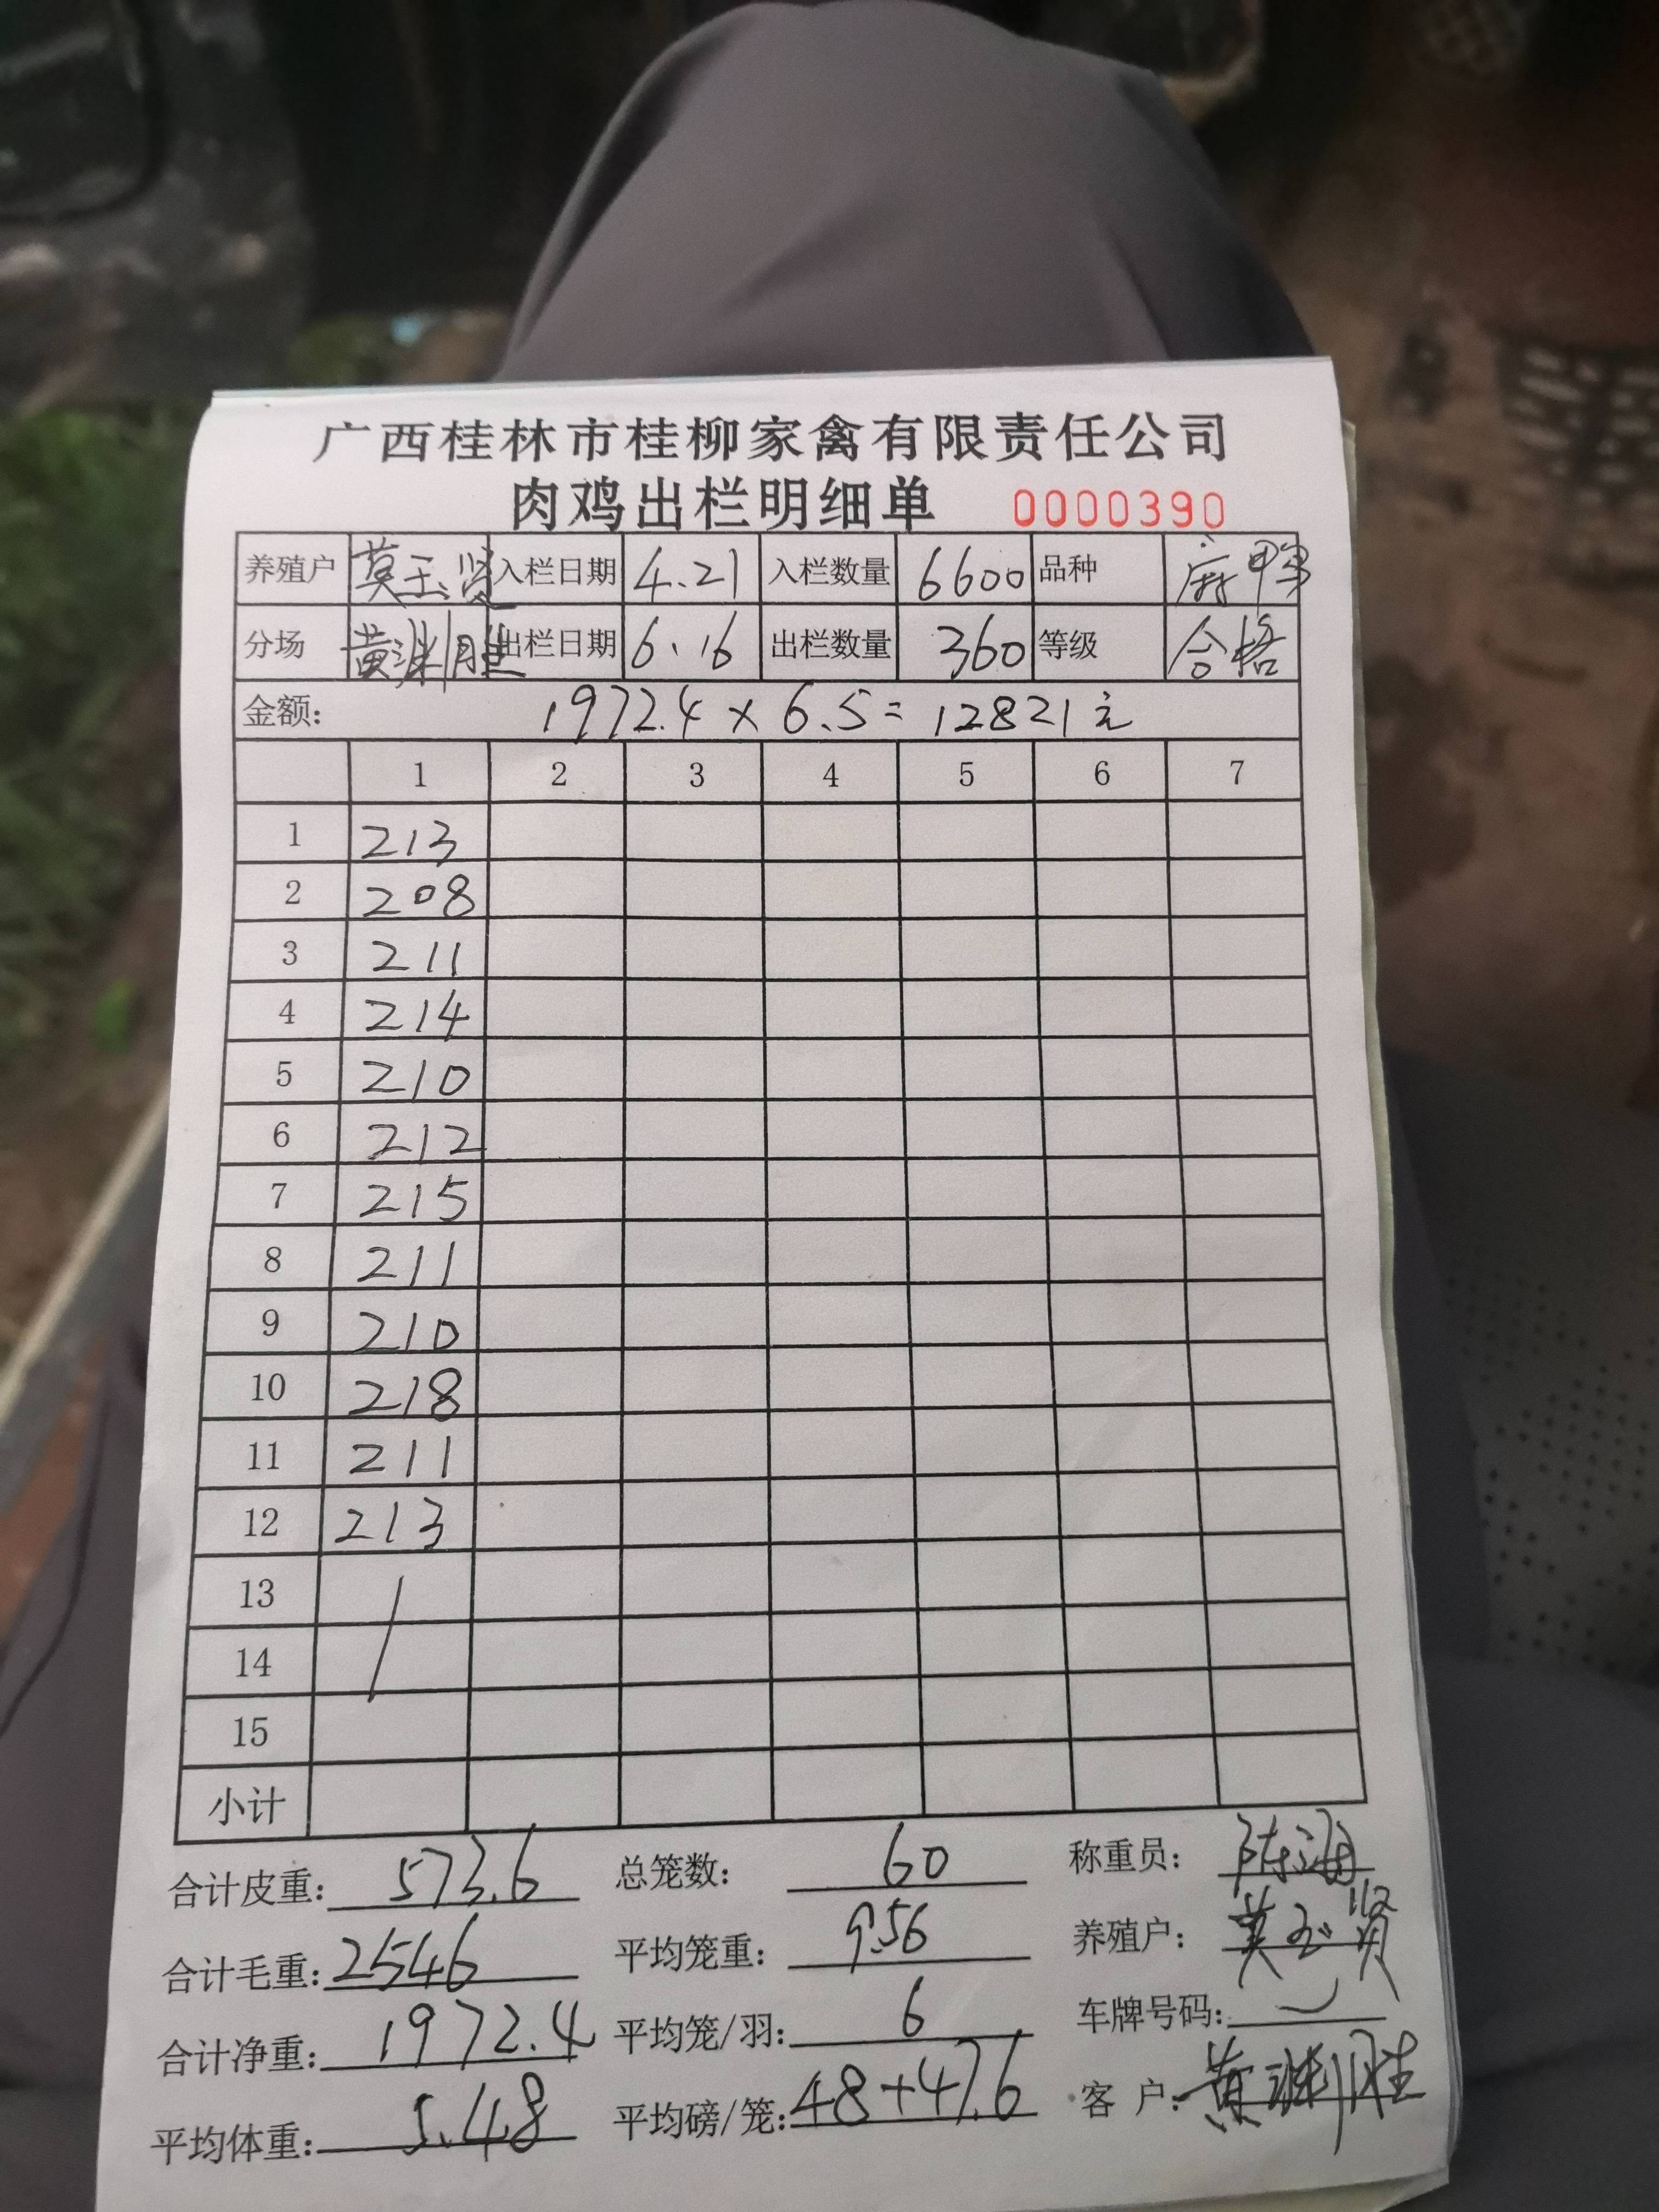 广西桂林市桂柳家禽有限责任公司
肉鸡出栏明细单 0000390
养殖户 莫玉贤 入栏日期 4.21 入栏数量 6600 品种 麻鸭
分场 黄渊胜 出栏日期 6.16 出栏数量 360 等级 合格
金额: 1972.4 x 6.5 = 12821元
1 2 3 4 5 6 7
1 213
2 208
3 211
4 214
5 210
6 212
7 215
8 211
9 210
10 218
11 211
12 213
13 /
14
15
小计
合计皮重: 573.6 总笼数: 60 称重员: 陈海
合计毛重: 2546 平均笼重: 9.56 养殖户: 莫玉贤
合计净重: 1972.4 平均笼/羽: 6 车牌号码:
平均体重: 5.48 平均磅/笼: 48+47.6 客 户: 黄渊胜